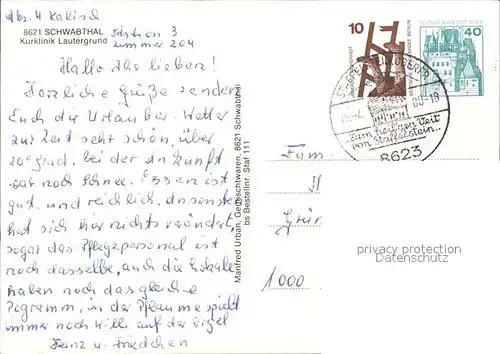 Abs. H Kalisch
8621 SCHWABTHAL
Kurklinik Lautergrund
Station 3
Zimmer 204
Hallo Ihr lieben!
Herzliche Grüße senden
Euch die Urlauber. Wetter
zur Zeit sehr schön, über
20 grad, bei der Ankunft
gar noch Schnee. Essen ist
gut und reichlich, ansonsten
hat sich hier nichts verändert
sogar das Pflegepersonal ist
noch dasselbe, auch die Lokale
haben noch das gleiche
Programm, in der Pflaume spielt
immer noch Willi auf der Orgel
Heinz u. Friedchen
Manfred Urban, Gemischtwaren, 8621 Schwabthal
bs Bestellnr. Staf 111
10
DEUTSCHE BUNDESPOST BERLIN
40
STAFFELSTEIN, OBERFR
80-18
"Zum heil'gen Veit
von Staffelstein..."
8623
Fam.
H
Grün
1000
privacy protection
Datenschutz